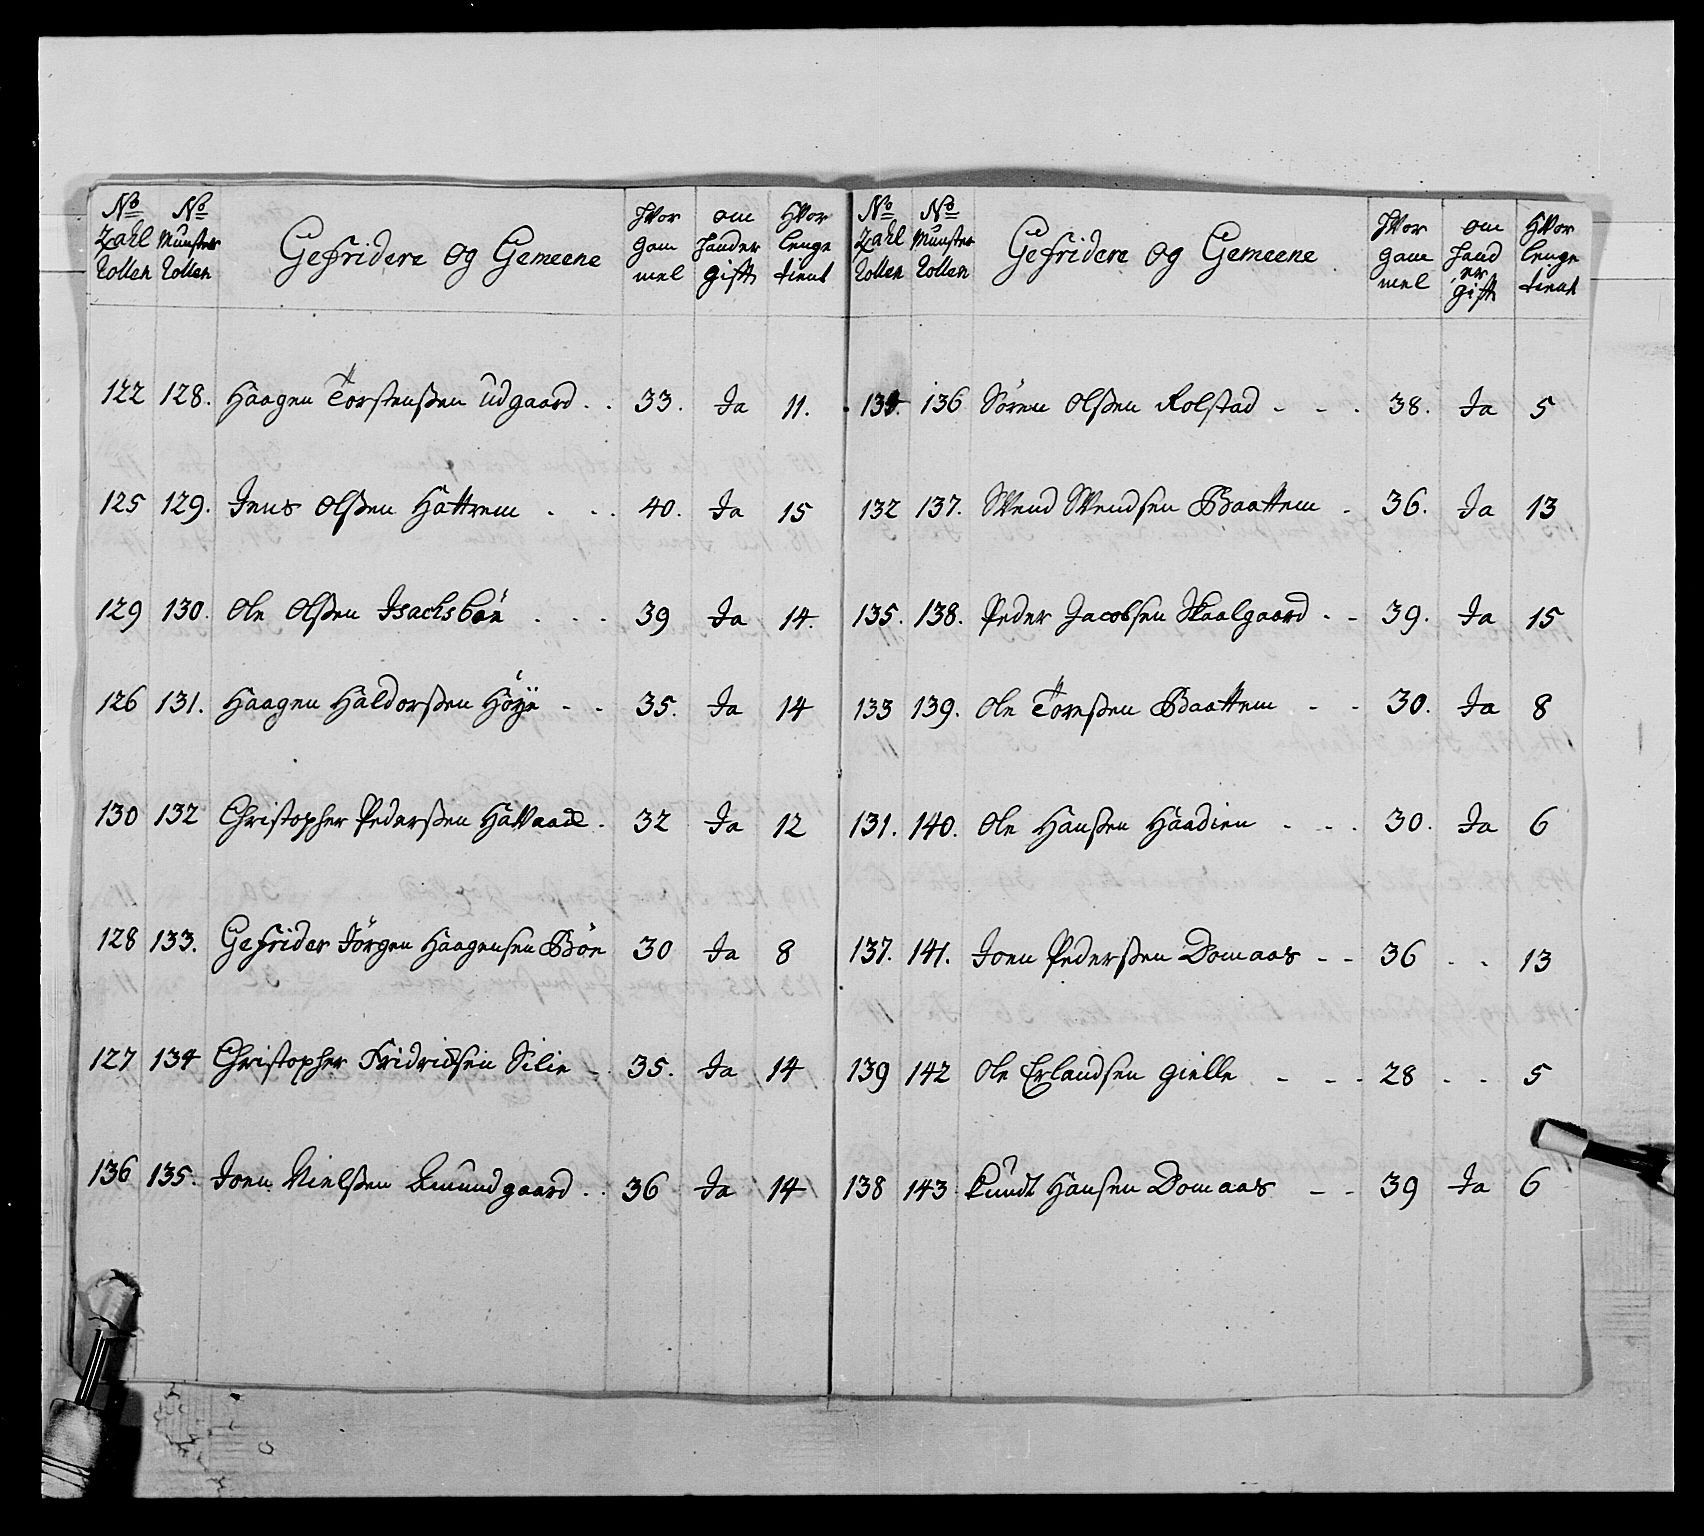 No Zahl Rollen | No Munster Rollen | Gefridere og Gemeene | Hvor gam mel | om hand er gift | Hvor lenge tient
122 128. Haagen Torstenßen Udgaard . . 33. Ja 11.
125 129. Jens Olßen Hattrem . . . 40. Ja 15
129 130. Ole Olßen Isachsböe . . . 39 Ja 14.
126 131. Haagen Haldorßen Höÿe - - 35. Ja 14
130 132 Christopher Pederßen . 32 Ja 12
128 133. Gefrider Jörgen Haagensen Böe 30 Ja 8
127 134 Christopher Fridrichsen Silie - 35. Ja 14
136 135. Joen Nielßen . . 36 Ja 14
No Zahl Rollen | No Munster Rollen | Gefridere og Gemeene | Hvor gam mel | om hand er gift | Hvor lenge tient
136 Sören Olßen Rolstad - - . 38. Ja 5
132 137. Svend Svendsen Baattem . 36. Ja 13
135. 138. Peder Jacobsen Skaalgaard - - 39. Ja 15
133 139. Ole Toreßen Baattem - - 30. Ja 8
131. 140. Ole Hanßen Haadien - - . 30. Ja 6
137. 141. Joen Pederßen Domaas - - 36 . . 13
139 142 Ole Erlandsen gielle - - . 28 . . 5
138 143 Knudt Hansen Domaas - - 39 Ja 6